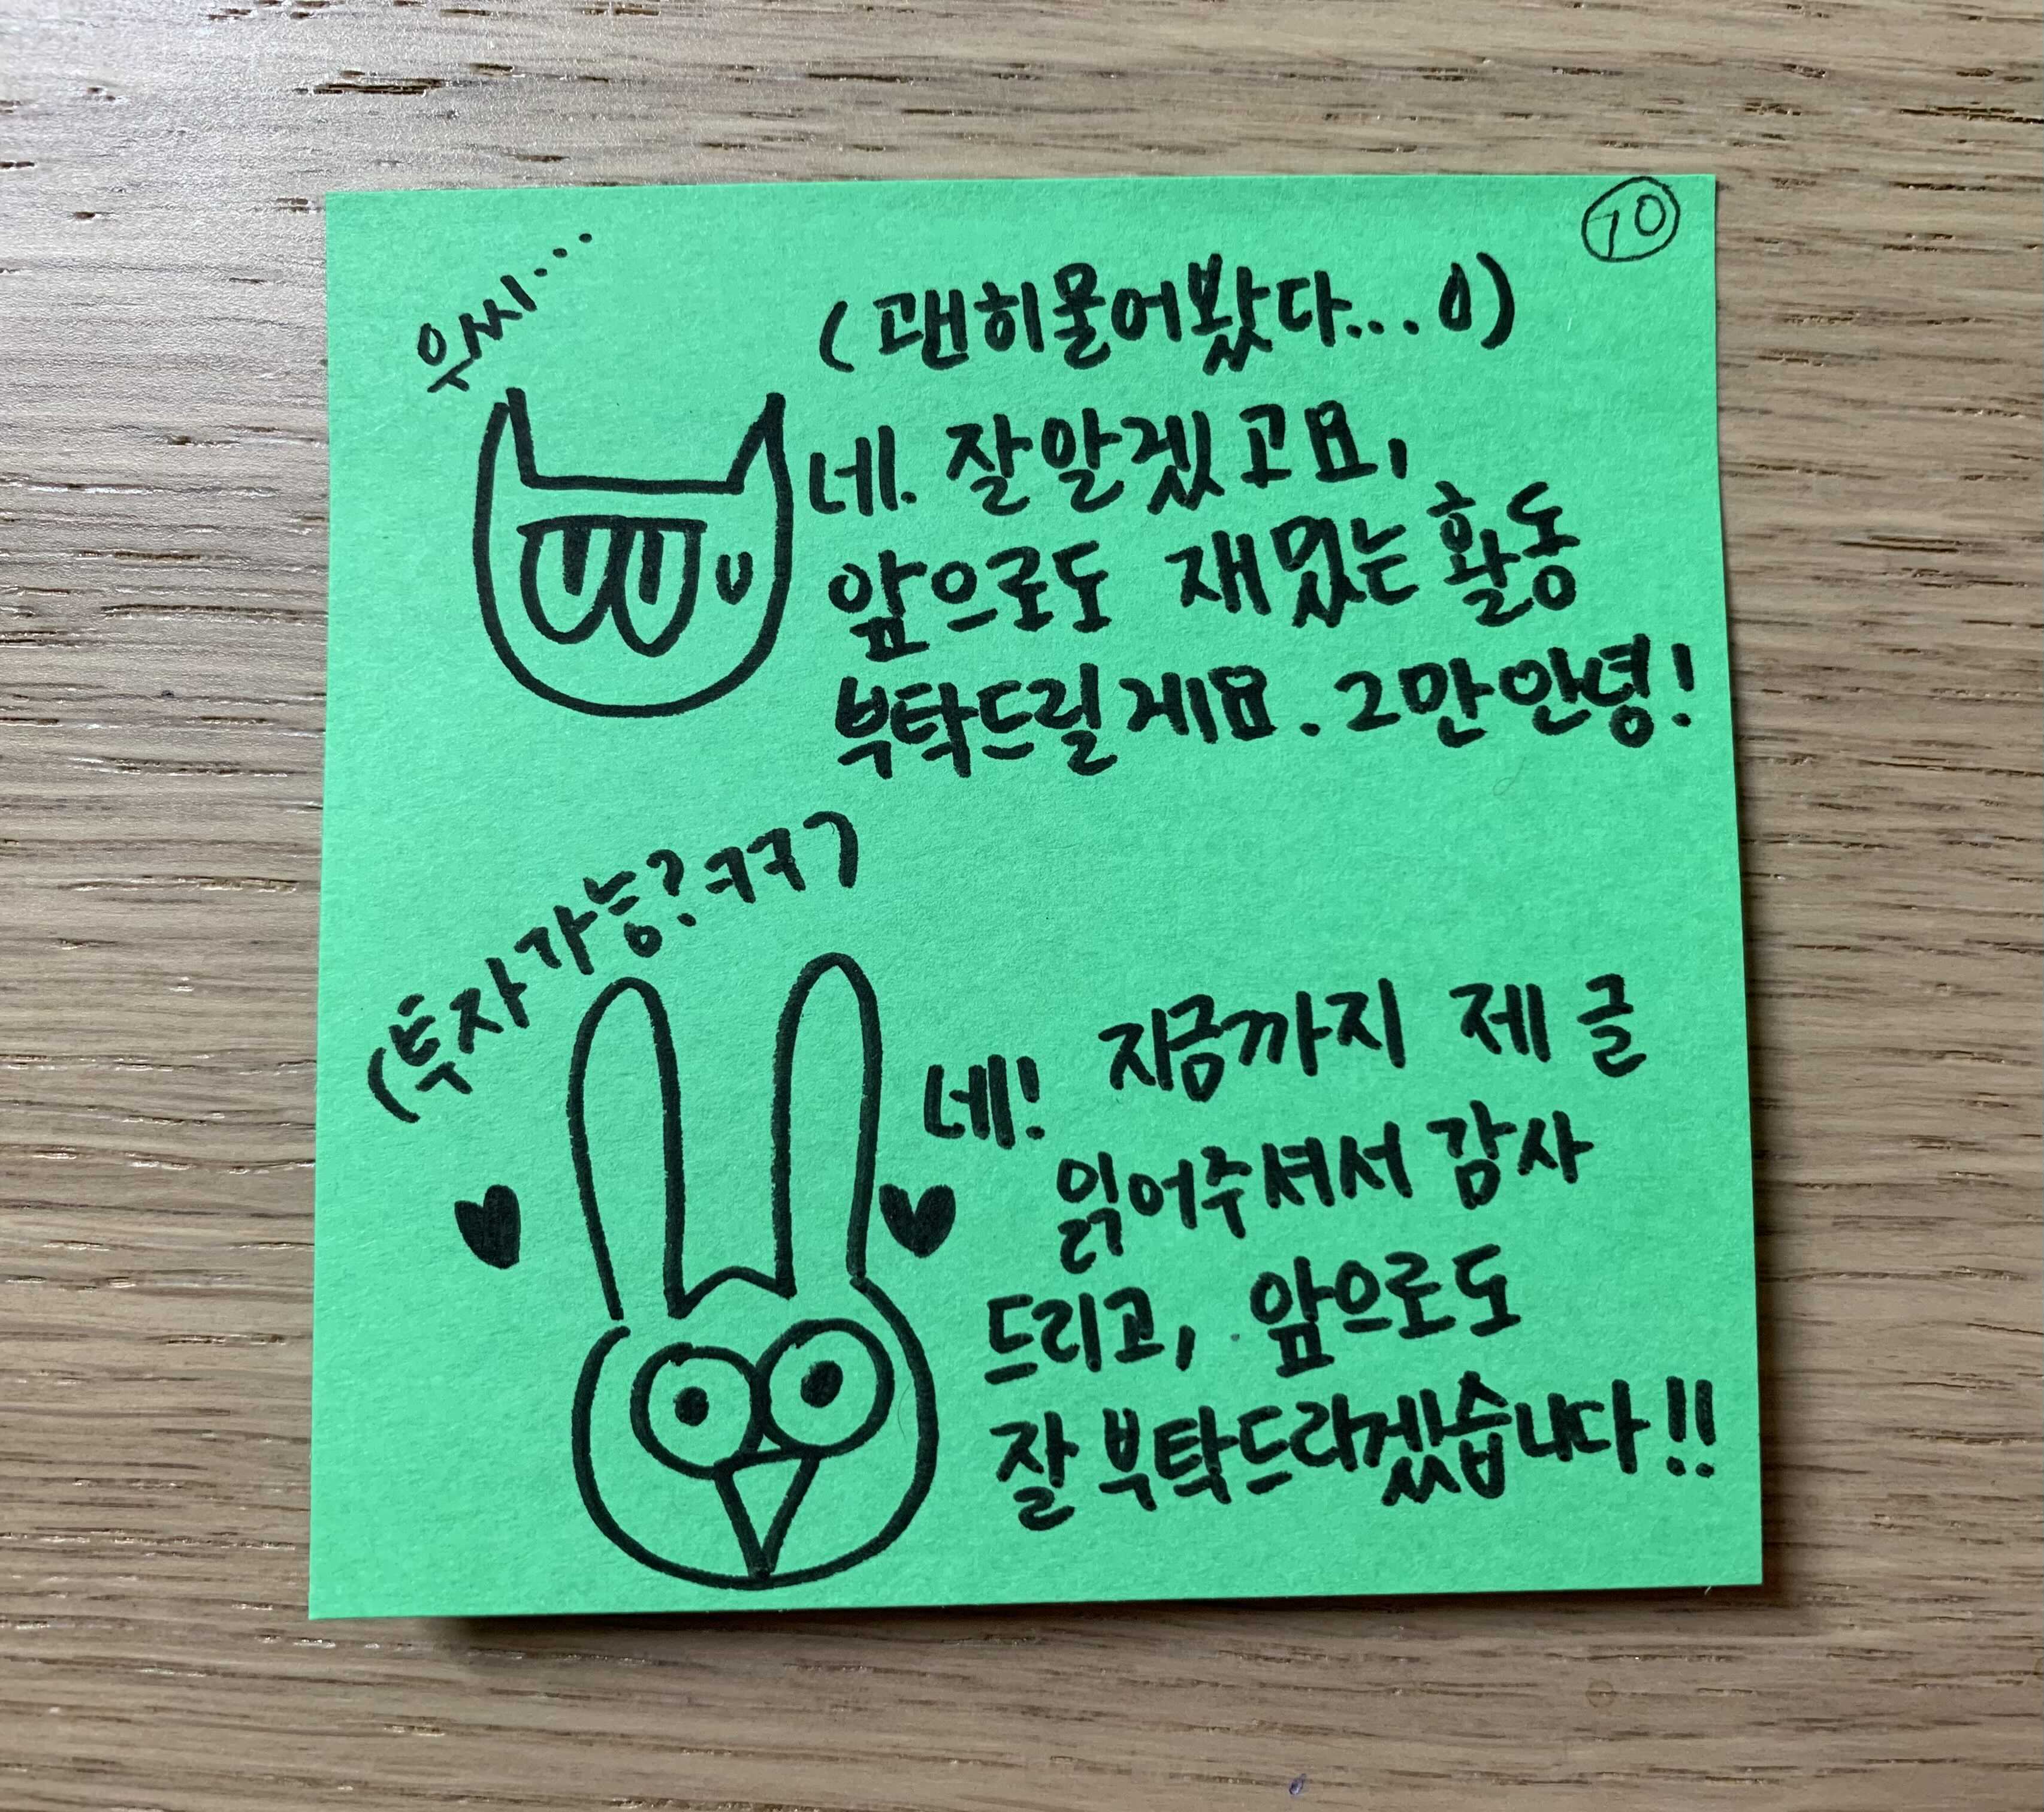 10
웃씨...
(괜히물어봤다... 0)
네. 잘알겠고요,
앞으로도 재밌는 활동
부탁드릴게요. 2만안녕!
(투자가능? ㅋㅋㄱ
네! 지금까지 제 글
읽어주셔서 감사
드리고, 앞으로도
잘 부탁드리겠습니다!!